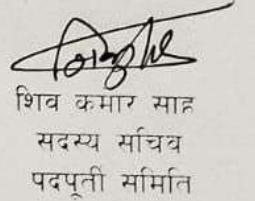 शिव कुमार साह
सदस्य सचिव
पदपूर्ती समिति